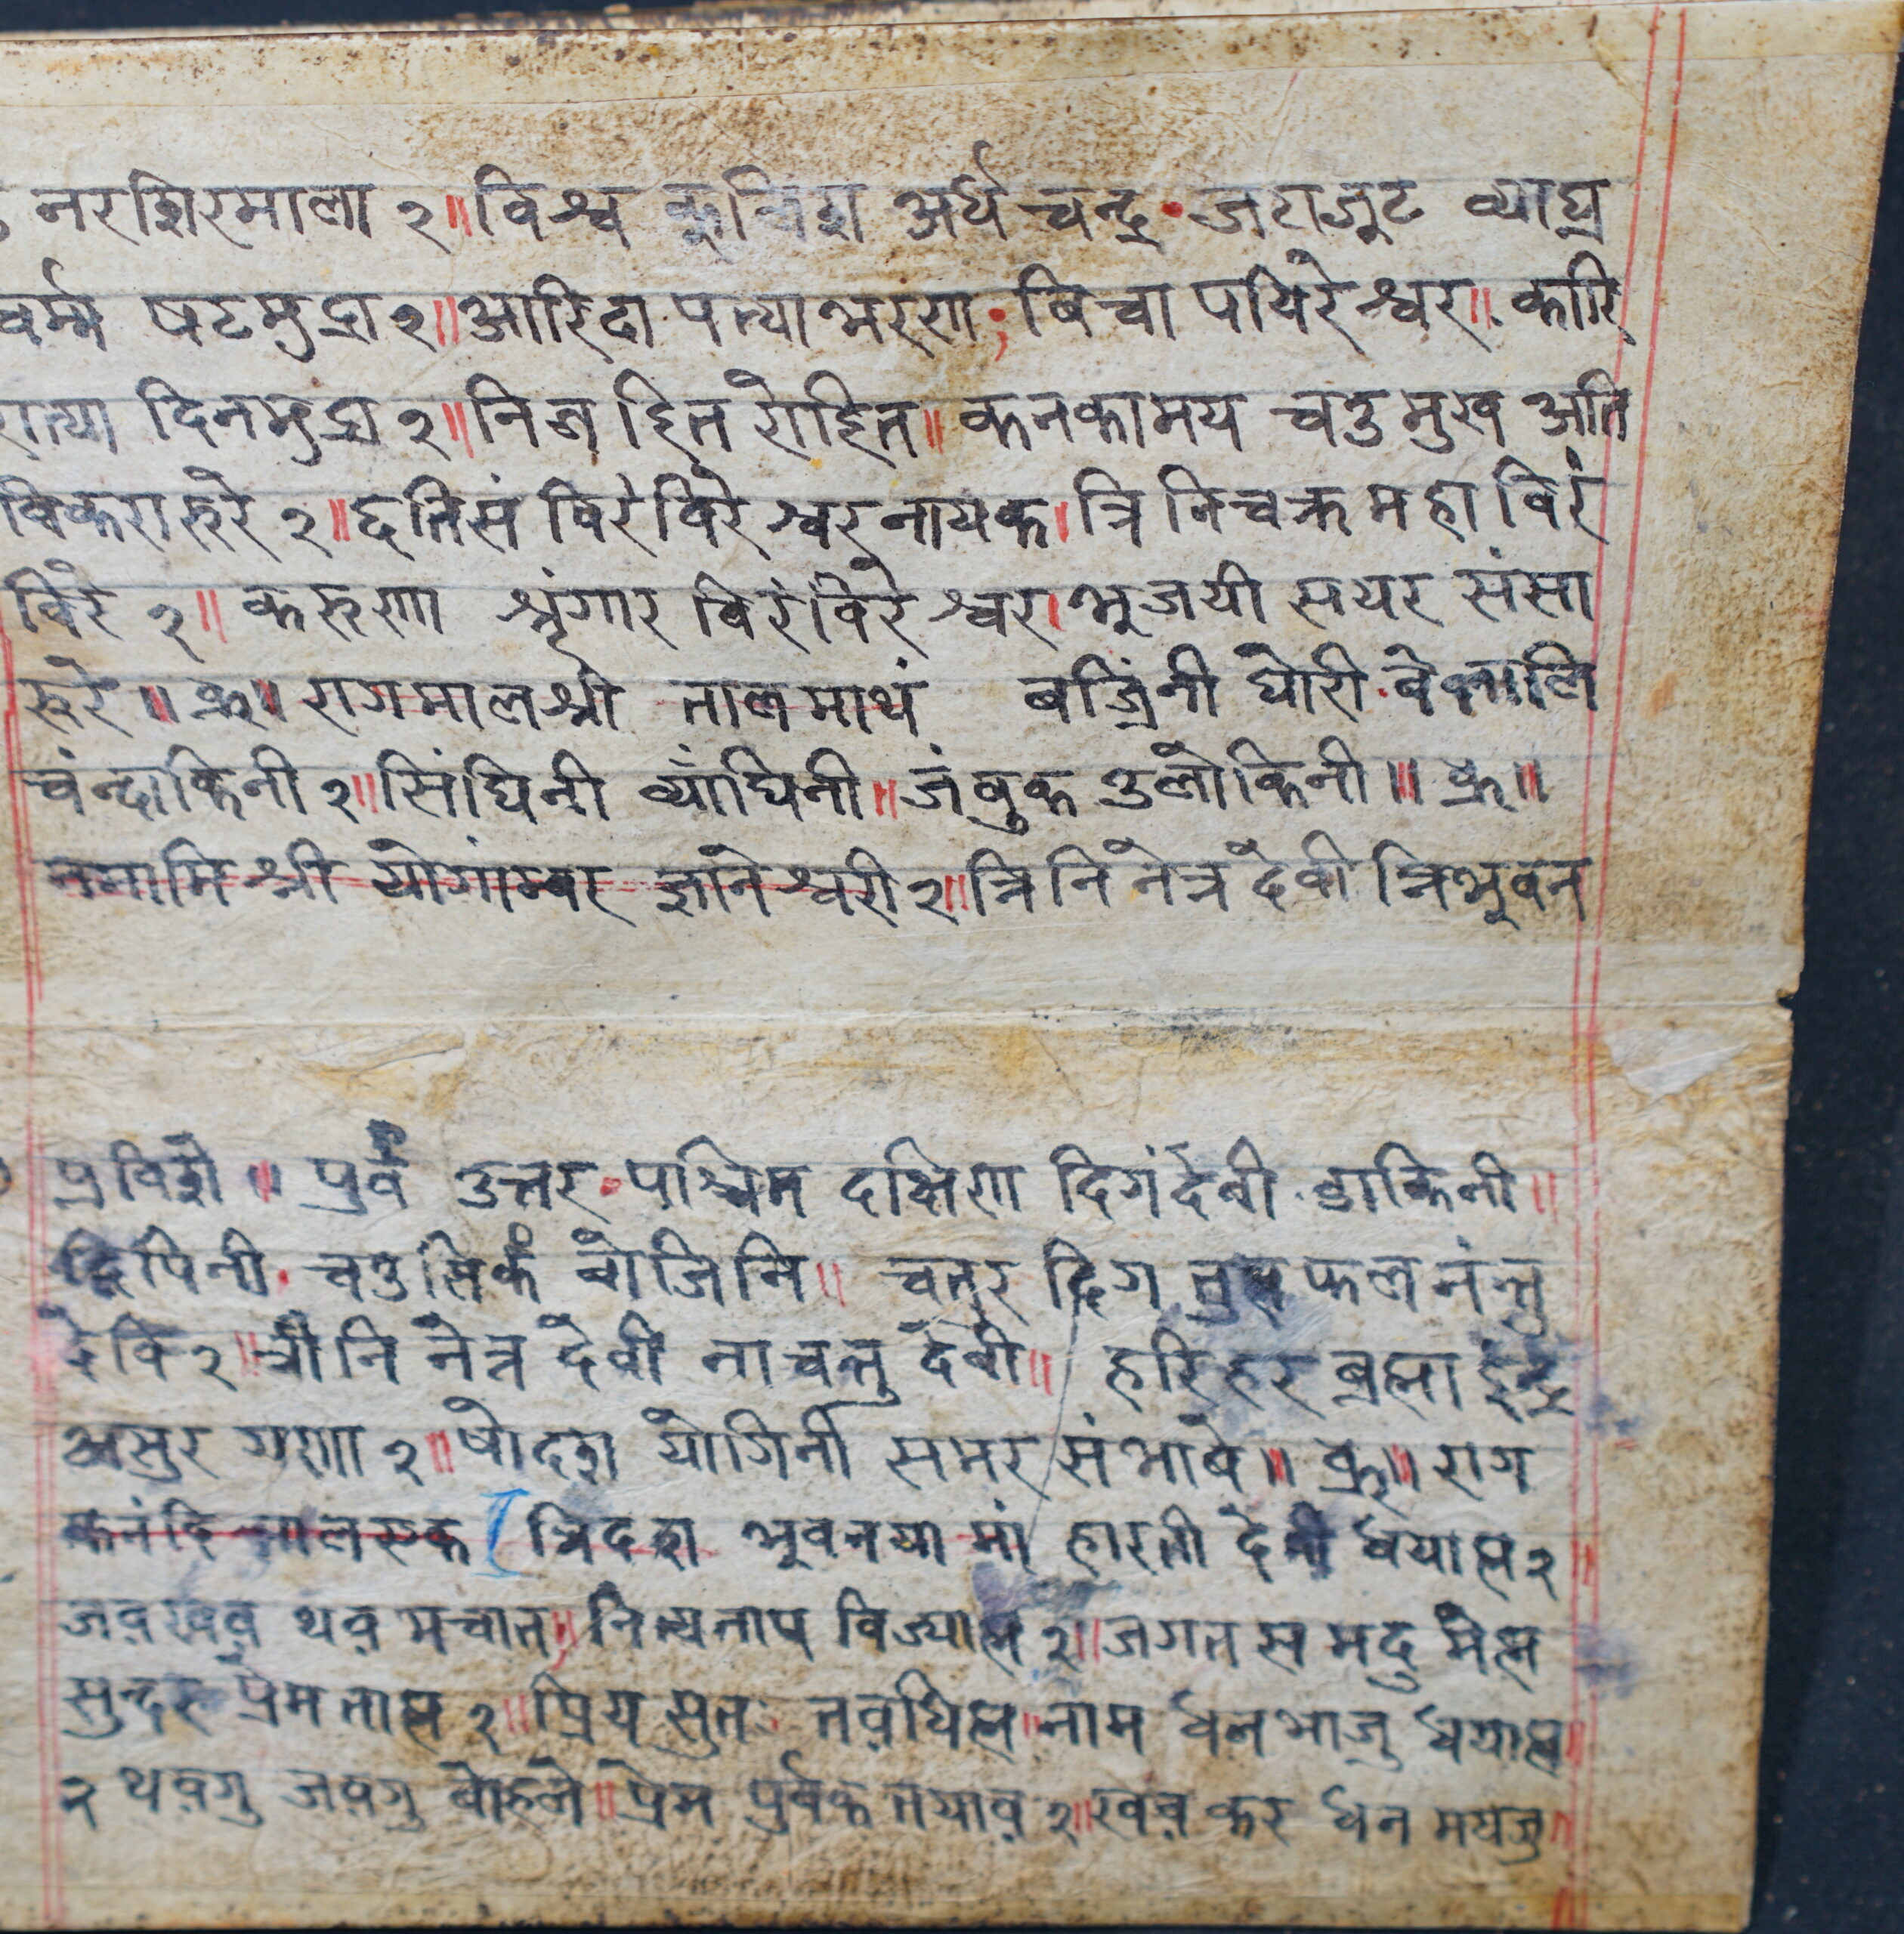 नरशिरमाला २॥विश्व कुलिश अर्ध चन्द्र जटाजुट व्याघ्र
चर्म्म षटमुद्रा २॥आरिदा पन्याभरणा; विचा पयिरेश्वरा॥ कारि
रात्या दिनमुद्रा २॥निज हित रोहित॥ कनकामय चतु मुख अति
विकरारुरे २॥छतिसं विरंविरेश्वर नायक। त्रि निचक्र महा विरं
विरे २॥ करुणा श्रृंगार विरंविरेश्वर। भूजयी सयर संसा
रुरे॥ क्रु॥ रागमालश्री तालमाथं बज्रिंनी घोरी वेतालि
चंन्दाकिनी २॥सिंघिनी व्यांघिनी॥जंबुक उलोकिनी॥ क्रु॥
नमामि श्री योगांम्बर ज्ञानेश्वरी २॥त्रिनि नेत्र देवी त्रिभूवन
प्रविशे॥ पुर्व उत्तर पश्चिम दक्षिणा दिगंदेवी डाकिनी॥
द्विपिनी चतु वोजिनि॥ चतुर दिग फल नंन्तु
देवि २॥त्रीनि नेत्र देवी नाचन्तु देवी॥ हरिहर ब्रह्मा इंद्र
असुर गणा २॥षोदश योगिनी समर संभावे॥ क्रु॥ राग
कनंदि तालरुक त्रिदश भूवनया मां हारती देवी धयाह्म २॥
जव़खव़ थव़ मचात॥नित्यताप विज्याह्म २॥जगत स मदु मेह्म
सुन्दर प्रेमताह्म २॥प्रिय सुत तव़धिह्म॥नाम धन भाजु धयाह्म॥
२ थव़गु जव़गु वोहले॥प्रेम पुर्वक तयाव़ २॥खव़ कर धन मयजु॥